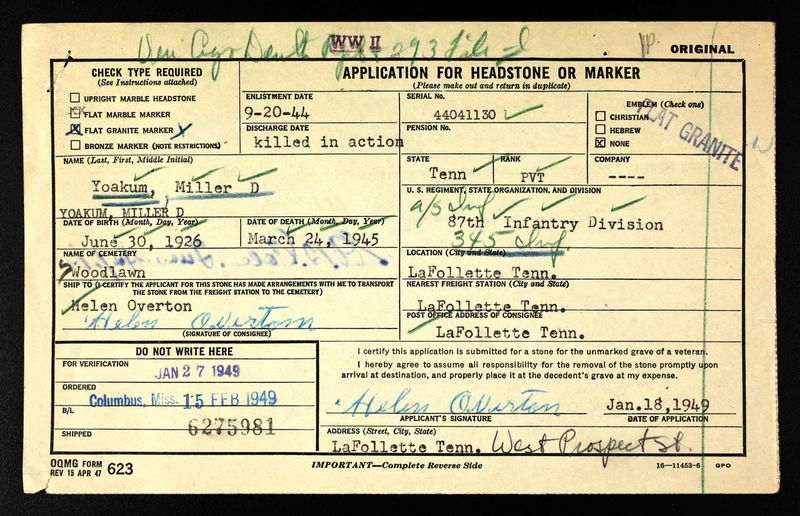 WW II
293 File
ORIGINAL
CHECK TYPE REQUIRED
(See Instructions attached)
UPRIGHT MARBLE HEADSTONE
FLAT MARBLE MARKER
FLAT GRANITE MARKER
BRONZE MARKER (NOTE RESTRICTIONS)
APPLICATION FOR HEADSTONE OR MARKER
(Please make out and return in duplicate)
ENLISTMENT DATE
9-20-44
DISCHARGE DATE
killed in action
SERIAL No.
44041130
PENSION No.
EMBLEM (Check one)
CHRISTIAN
HEBREW
NONE
FLAT GRANITE
NAME (Last, First, Middle Initial)
Yoakum, Miller D
YOAKUM, MILLER D
STATE
Tenn
RANK
PVT
COMPANY
----
U. S. REGIMENT, STATE ORGANIZATION, AND DIVISION
a/s Inf
87th Infantry Division
345 Inf.
DATE OF BIRTH (Month, Day, Year)
June 30, 1926
DATE OF DEATH (Month, Day, Year)
March 24, 1945
NAME OF CEMETERY
Woodlawn
LOCATION (City and State)
LaFollette Tenn.
SHIP TO (I CERTIFY THE APPLICANT FOR THIS STONE HAS MADE ARRANGEMENTS WITH ME TO TRANSPORT
THE STONE FROM THE FREIGHT STATION TO THE CEMETERY)
Helen Overton
Helen Overton
(SIGNATURE OF CONSIGNEE)
NEAREST FREIGHT STATION (City and State)
LaFollette Tenn.
POST OFFICE ADDRESS OF CONSIGNEE
LaFollette Tenn.
DO NOT WRITE HERE
FOR VERIFICATION
JAN 27 1949
ORDERED
Columbus, Miss. 15 FEB 1949
B/L
6275981
SHIPPED
I certify this application is submitted for a stone for the unmarked grave of a veteran.
I hereby agree to assume all responsibility for the removal of the stone promptly upon
arrival at destination, and properly place it at the decedent's grave at my expense.
Helen Overton
Jan.18,1949
APPLICANT'S SIGNATURE
DATE OF APPLICATION
ADDRESS (Street, City, State)
LaFollette Tenn. West Prospect St.
OQMG FORM
REV 15 APR 47
623
IMPORTANT—Complete Reverse Side
16—11453-6 GPO